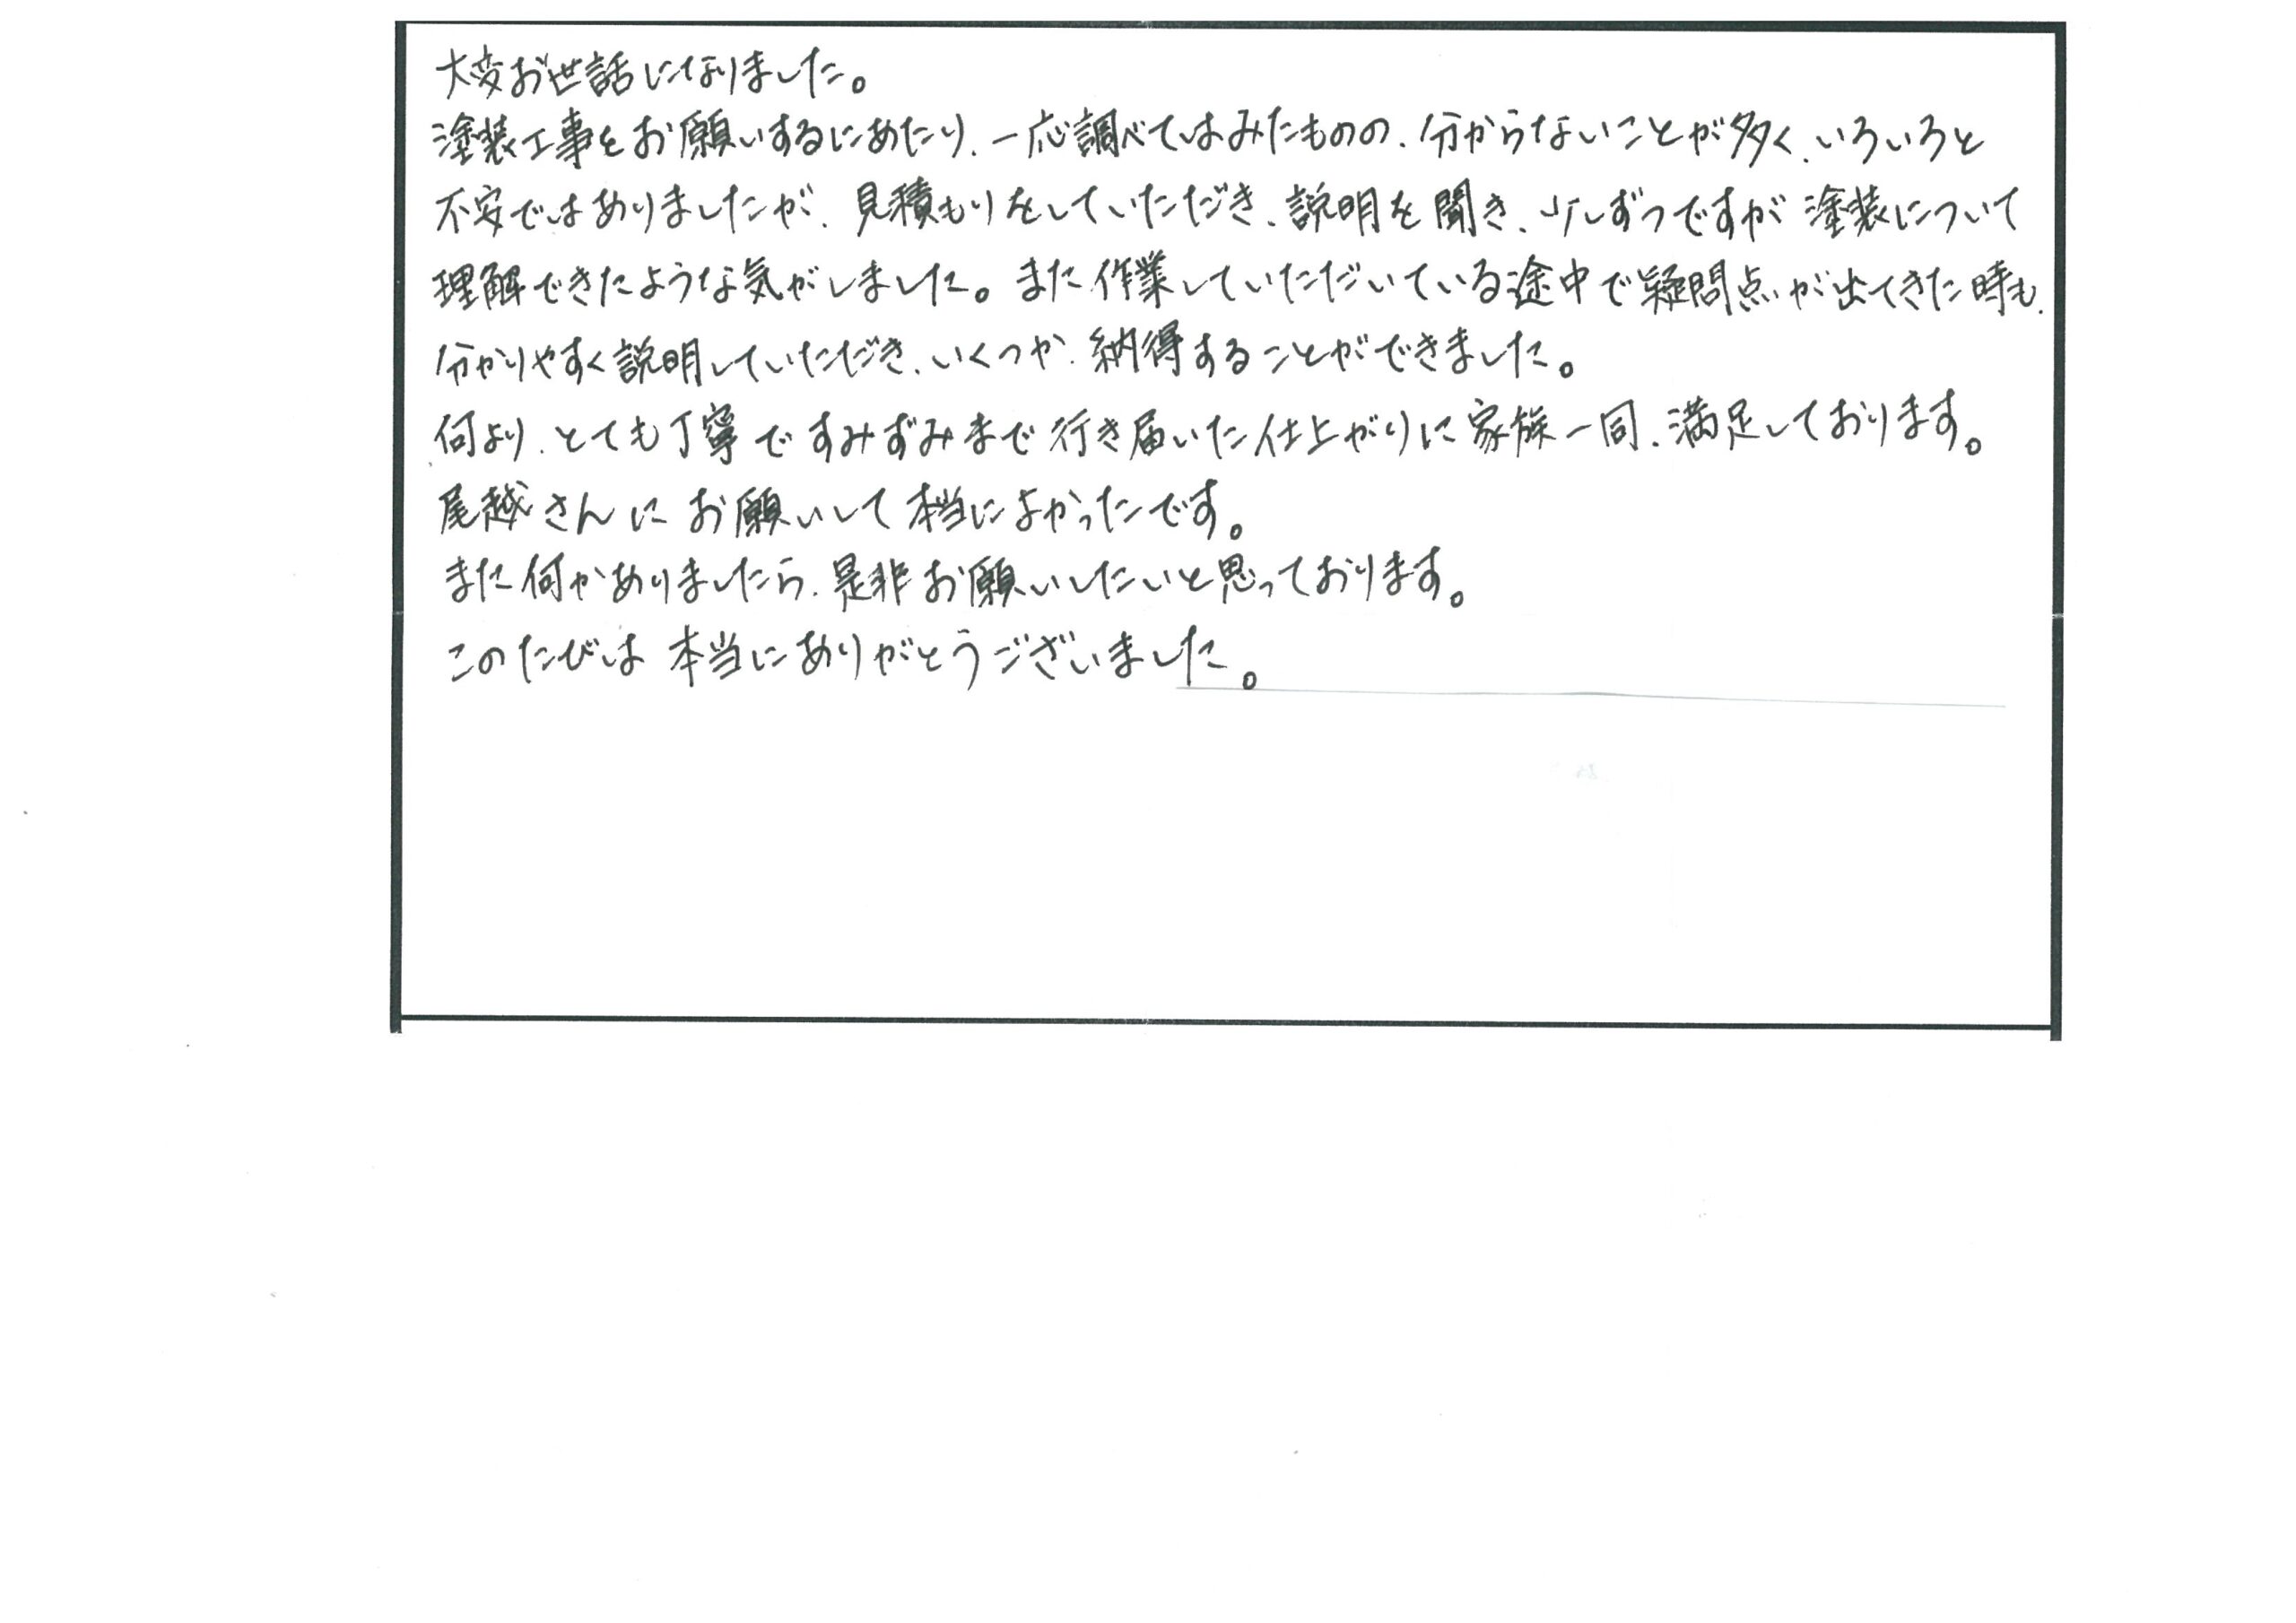 大変お世話になりました。
塗装工事をお願いするにあたり、一応調べてはみたものの、分からないことが多く、いろいろと
不安ではありましたが、見積もりをしていただき、説明を聞き、少しずつですが塗装について
理解できたような気がしました。また作業していただいている途中で疑問点が出てきた時も、
分かりやすく説明していただき、いくつか、納得することができました。
何より、とても丁寧ですみずみまで行き届いた仕上がりに家族一同、満足しております。
尾越さんにお願いして本当によかったです。
また何かありましたら、是非お願いしたいと思っております。
このたびは本当にありがとうございました。